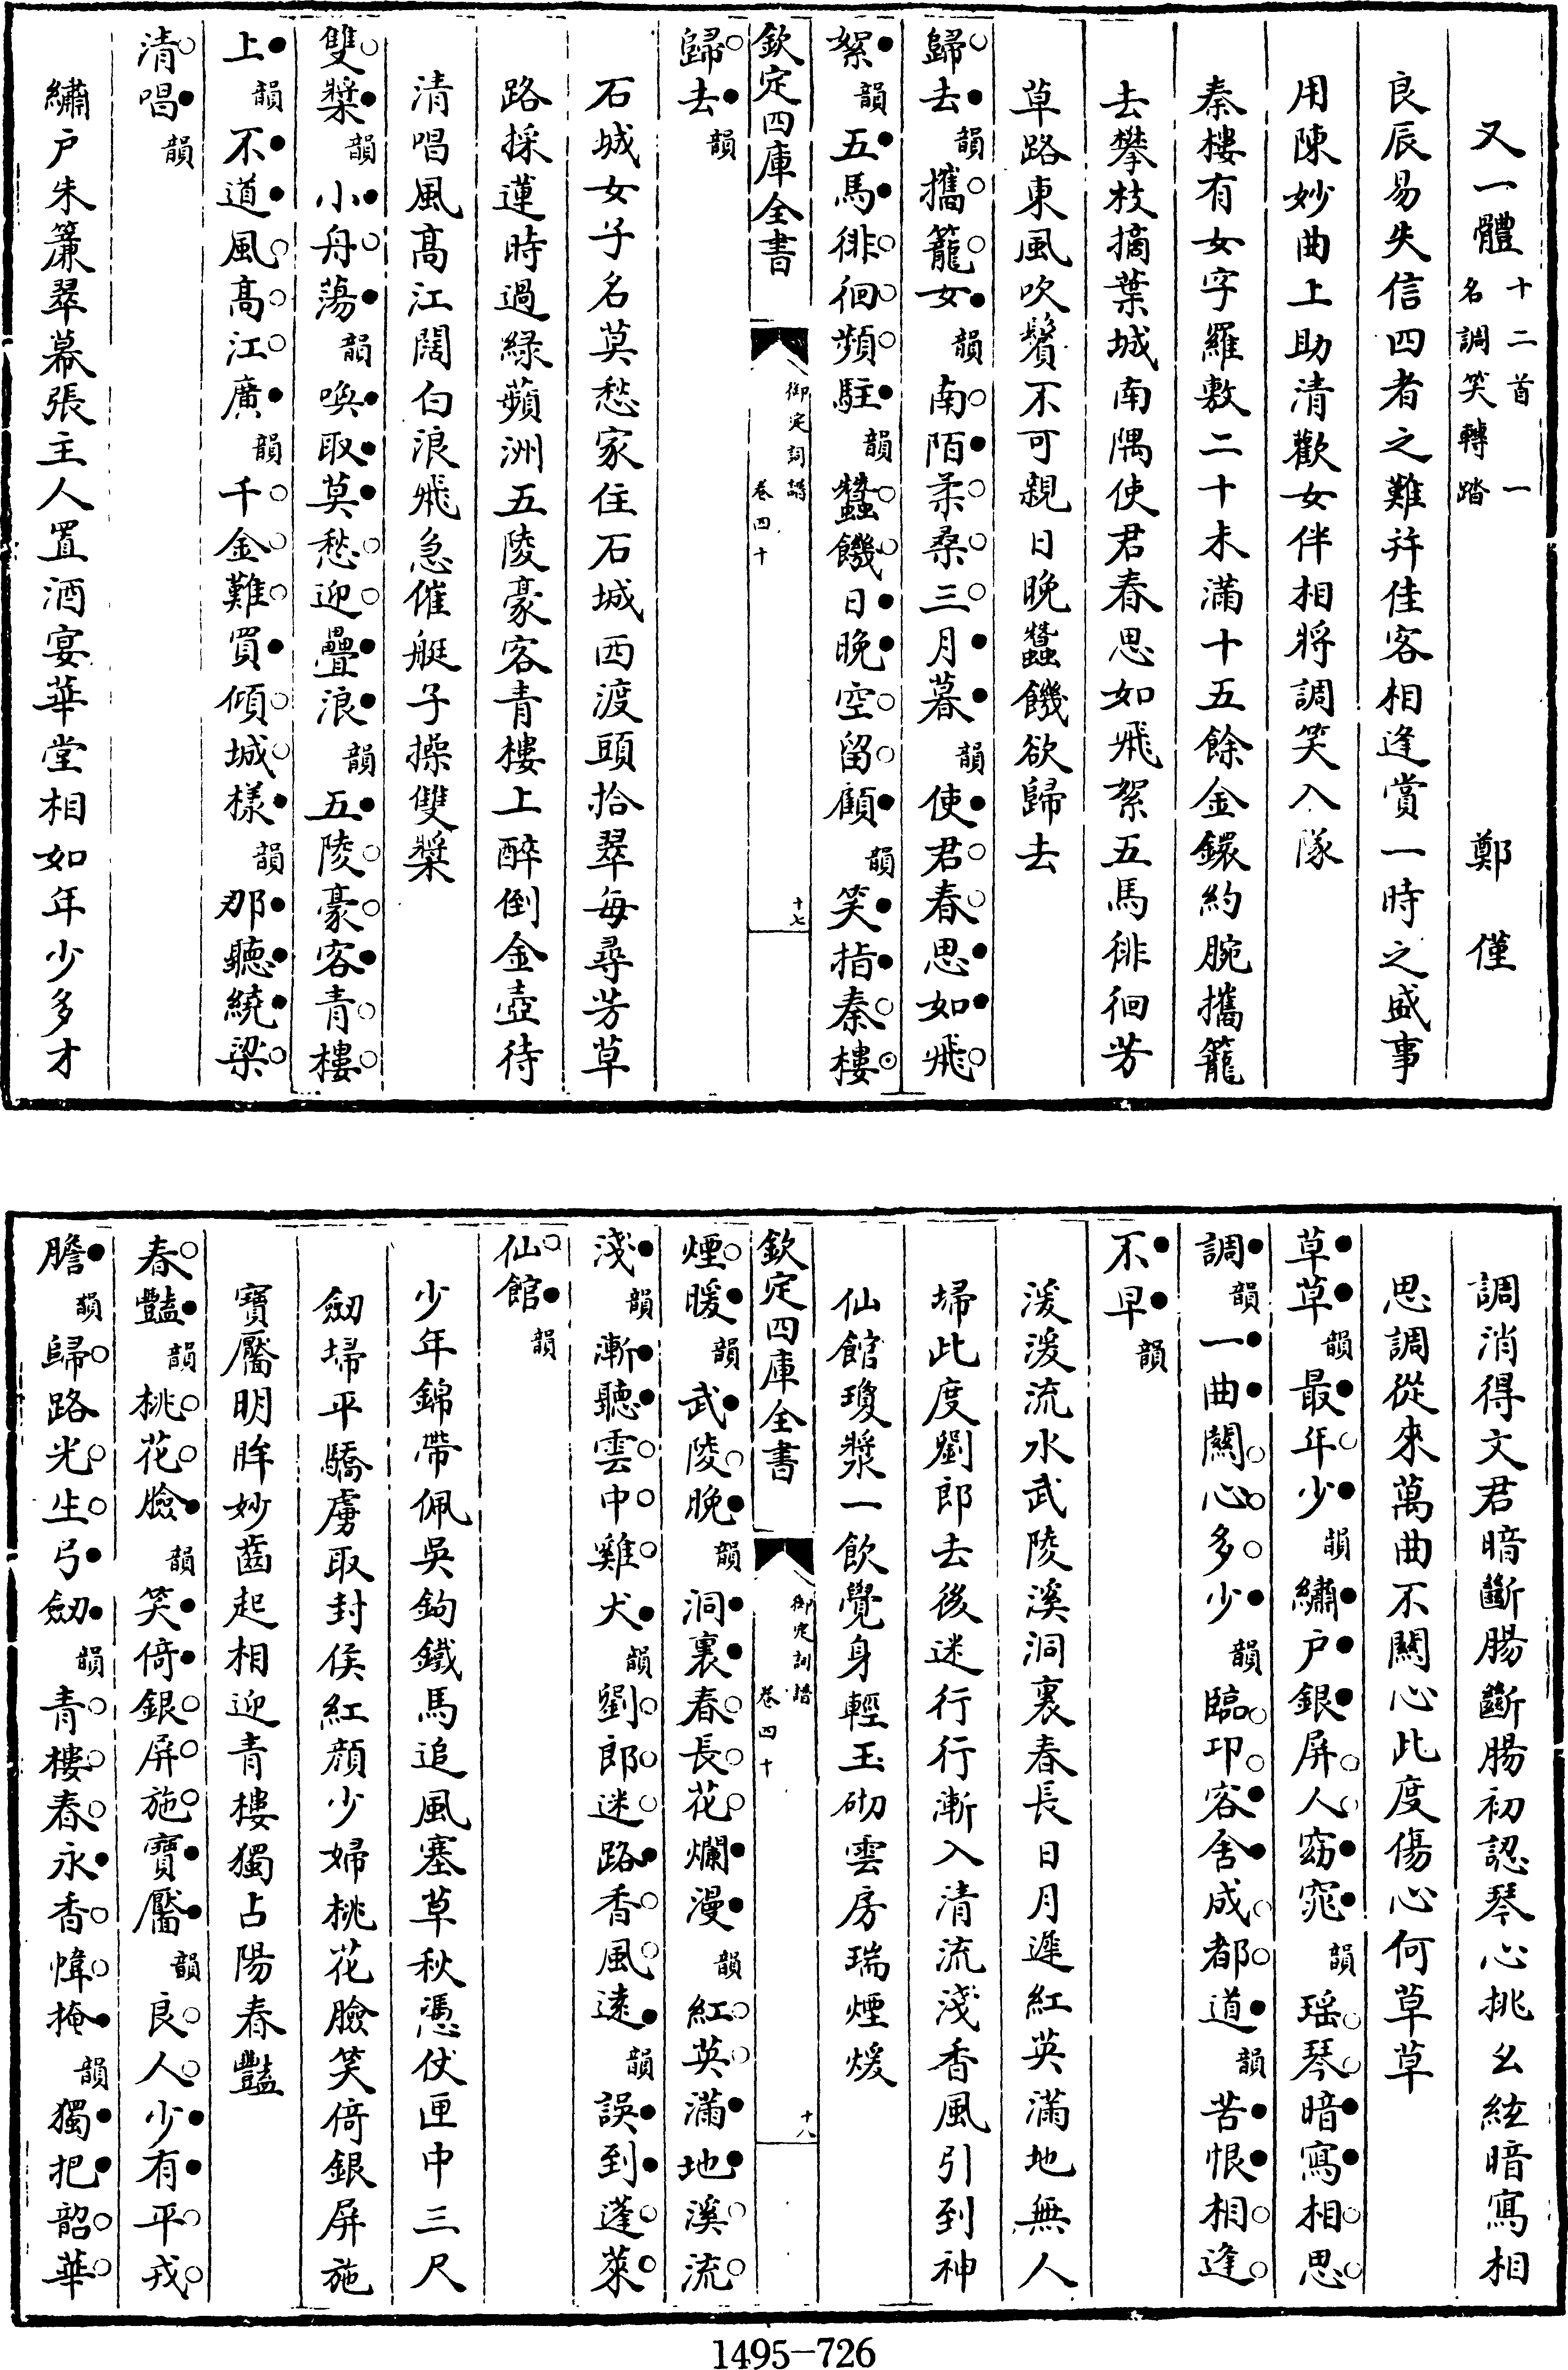 又一體十二首一名調笑轉踏 鄭僅
良辰易失信四者之難并佳客相逢賞一時之盛事
用陳妙曲上助清歡女伴相將調笑入隊
秦樓有女字羅敷二十未滿十五餘金鐶約腕攜籠
去攀枝摘葉城南隅使君春思如飛絮五馬徘徊芳
草路東風吹鬢不可親日晚蠶饑欲歸去
歸去韻攜籠女韻南陌柔桑三月暮韻使君春思如飛
絮韻五馬徘徊頻駐韻蠶饑日晚空留顧韻笑指秦樓
欽定四庫全書 御定詞譜 卷四十 十七
歸去韻
石城女子名莫愁家住石城西渡頭拾翠每尋芳草
路採蓮時過綠蘋洲五陵豪客青樓上醉倒金壺待
清唱風高江闊白浪飛急催艇子操雙槳
雙槳韻小舟蕩韻喚取莫愁迎疊浪韻五陵豪客青樓
上韻不道風高江廣韻千金難買傾城様韻那聽繞梁
清唱韻
繡户朱簾翠幕張主人置酒宴華堂相如年少多才
調消得文君暗斷腸斷腸初認琴心挑幺絃暗寫相
思調從來萬曲不關心此度傷心何草草
草草韻最年少韻繡户銀屏人窈窕韻瑶琴暗寫相思
調韻一曲關心多少韻臨邛客舍成都道韻苦恨相逢
不早韻
湲湲流水武陵溪洞裏春長日月遲紅英滿地無人
埽此度劉郎去後迷行行漸入清流淺香風引到神
仙館瓊漿一飲覺身輕玉砌雲房瑞煙煖
欽定四庫全書 御定詞譜 卷四十 十八
煙暖韻武陵晚韻洞裏春長花爛漫韻紅英滿地溪流
淺韻漸聽雲中雞犬韻劉郎迷路香風逺韻誤到蓬萊
仙館韻
少年錦帶佩吳鉤鐵馬追風塞草秋憑仗匣中三尺
劒埽平驕虜取封侯紅顔少婦桃花臉笑倚銀屏施
寶靨明眸妙齒起相迎青樓獨占陽春豔
春豔韻桃花臉韻笑倚銀屏施寶靨韻良人少有平戎
膽韻歸路光生弓劒韻青樓春永香幃掩韻獨把韶華
1495—726